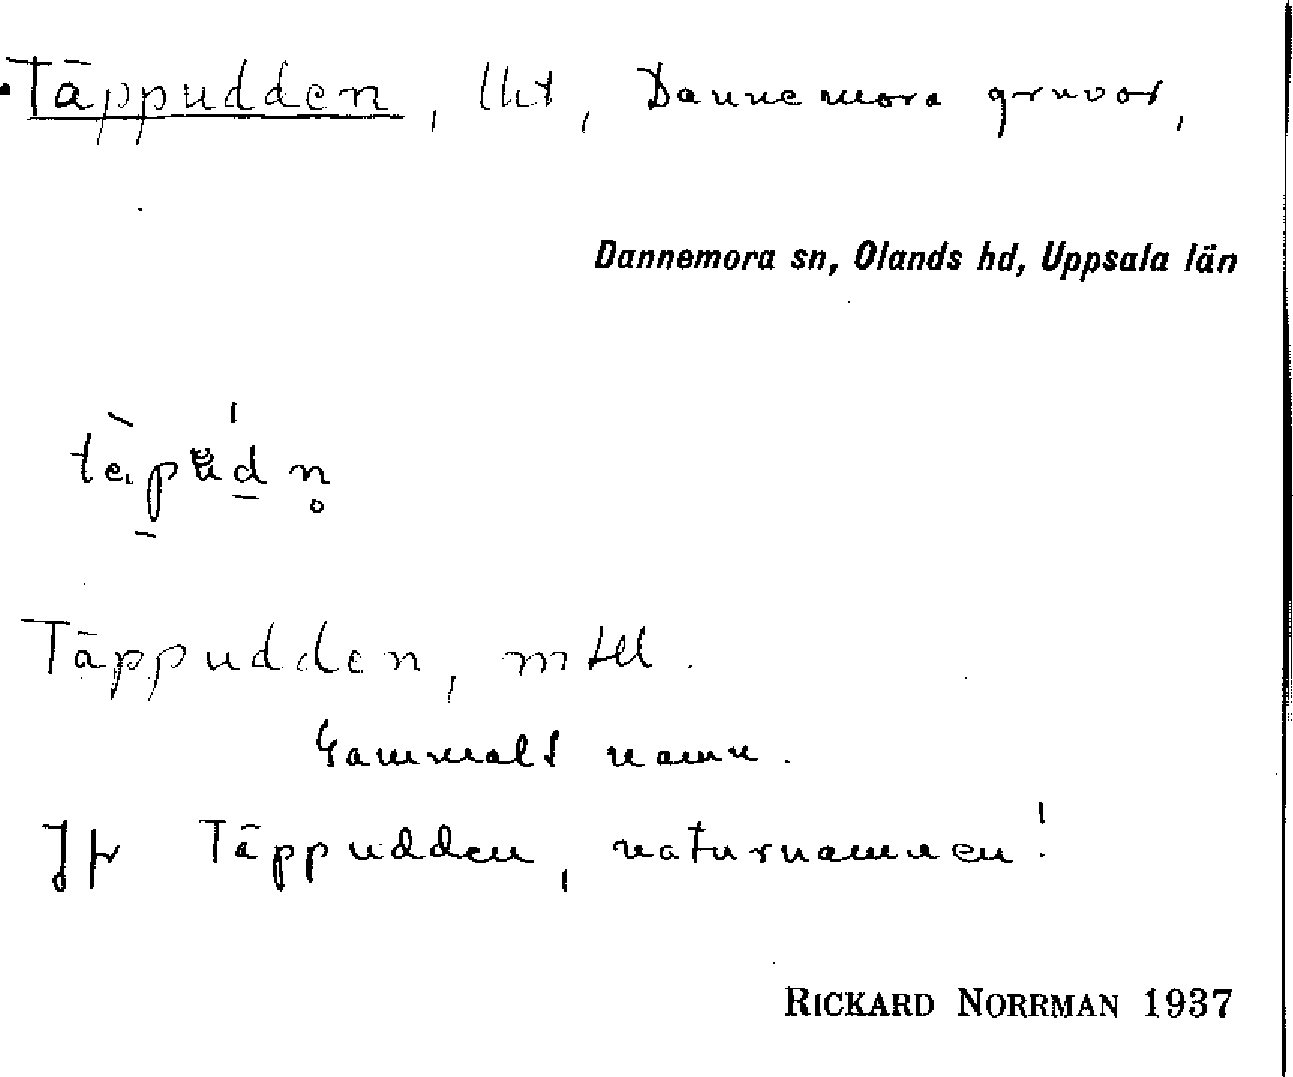 Täppudden, lht, Dannemora gruvor,
Dannemora sn, Olands hd, Uppsala län
Täppudden, mtll.
Gammalt namn.
Jfr Täppudden, naturnamnen!
RICKARD NORRMAN 1937